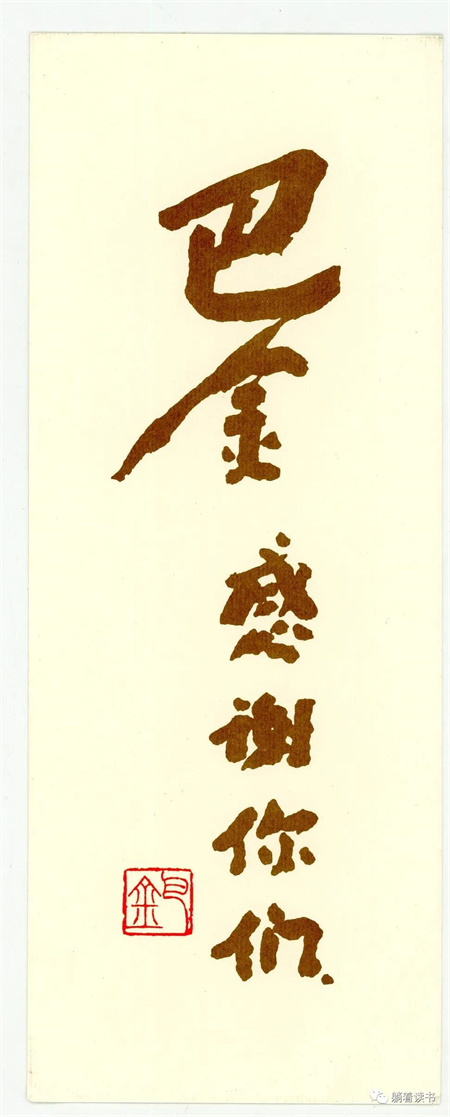 巴金
感谢你们.
巴金
躺着读书